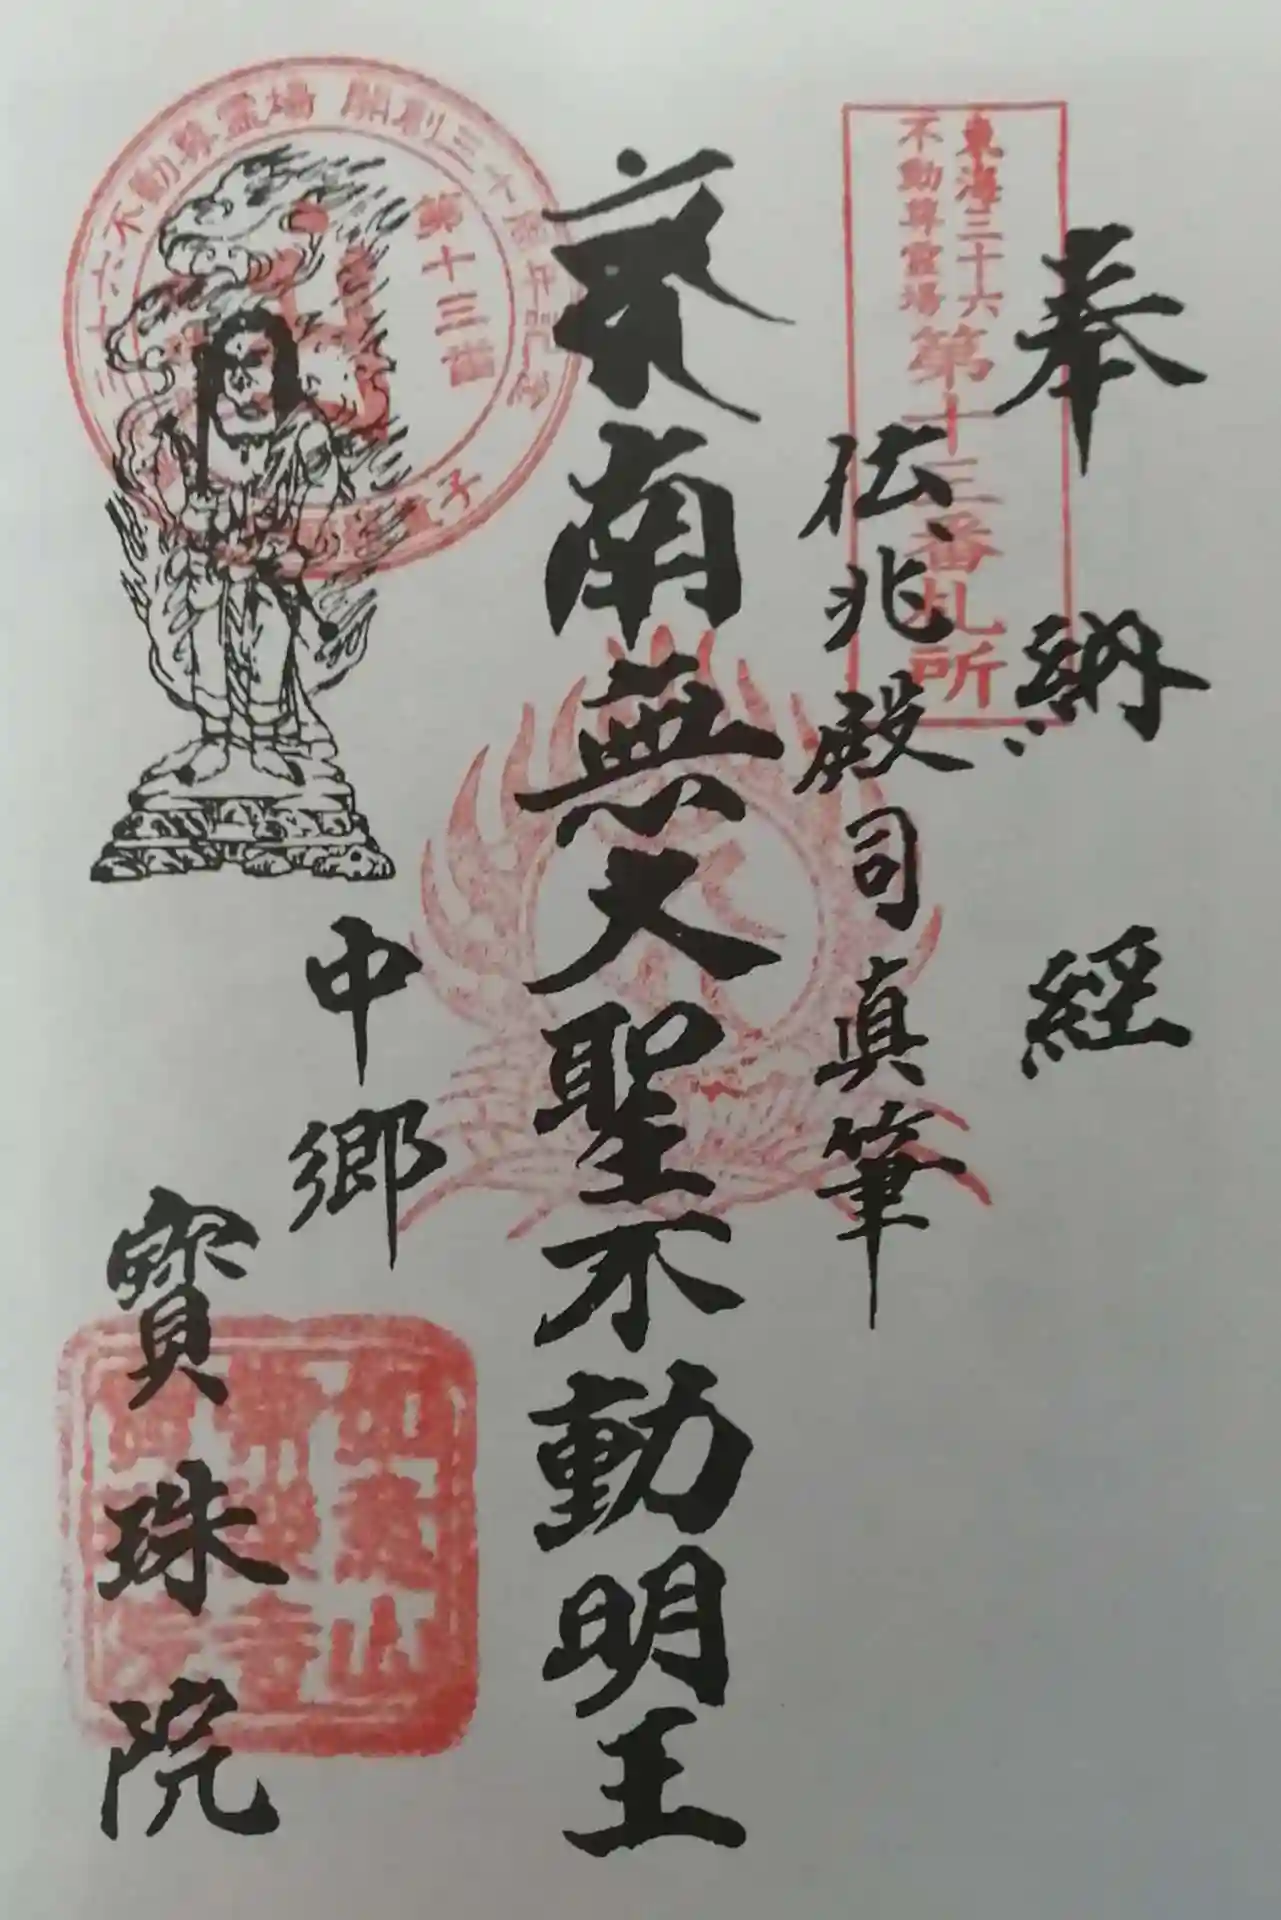 奉納経
東海三十六
不動尊霊場
第十三番札所
伝兆殿司真筆
南無大聖不動明王
中郷
寳珠院
三十六不動尊霊場 開創三十周年記念
第十三番